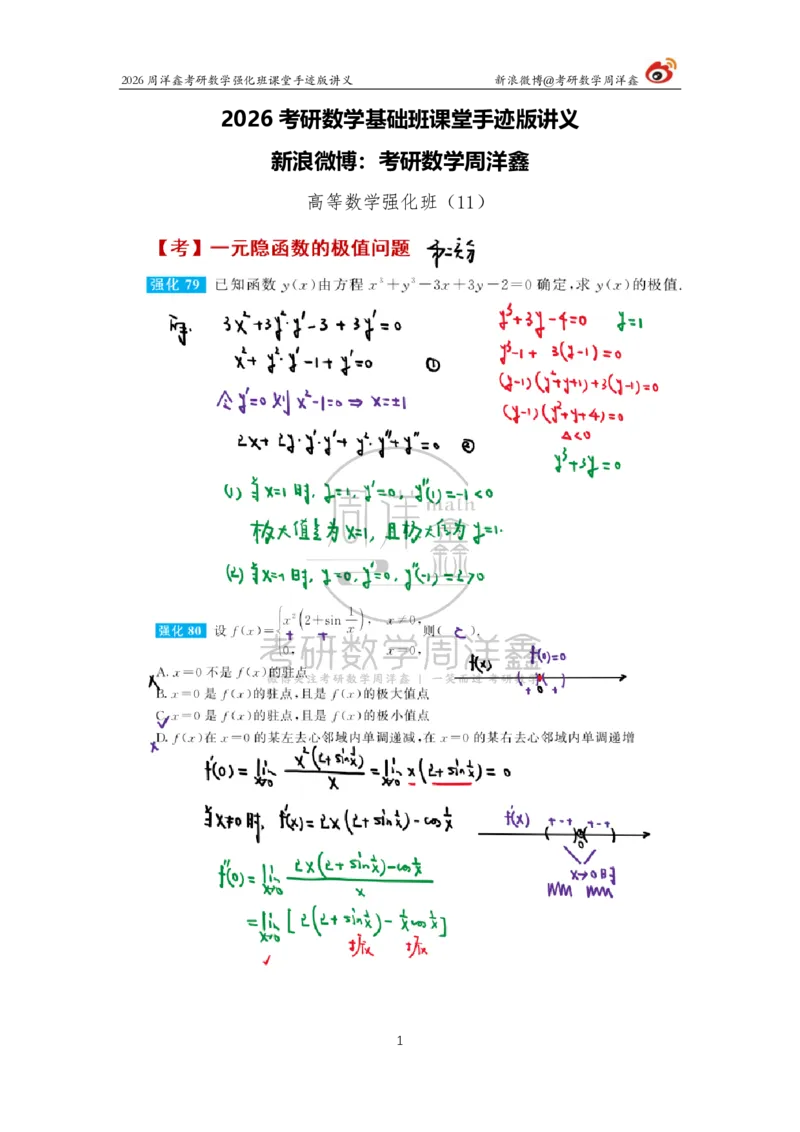 2026周洋鑫考研数学强化班课堂手迹版讲义 新浪微博@考研数学周洋鑫
2026 考研数学基础班课堂手迹版讲义
新浪微博：考研数学周洋鑫
高等数学强化班（11）
【考】一元隐函数的极值问题
强化 79 已知函数 y(x)由方程 x³+y³-3x+3y-2=0 确定,求 y(x)的极值.
3x²+3y²·y'-3+3y'=0
x²+y²·y'-1+y'=0 ①
令y'=0 则 x²-1=0 ⇒ x=±1
2x+2y·y'·y'+y²·y''+y''=0 ②
y³+3y-4=0 y=1
y³-1+3(y-1)=0
(y-1)(y²+y+1)+3(y-1)=0
(y-1)(y²+y+4)=0
Δ<0
y³+3y=0
(1) 当x=1时, y=1, y'=0, y''(1)=-1<0
极大值点为 x=1, 且极大值为 y=1.
(2) 当x=-1时, y=0, y'=0, y''(-1)=2>0
周洋鑫 math
考研数学周洋鑫
微博关注考研数学周洋鑫 | 一笑而过 考研数学
强化 80 设 f(x)={x²(2+sin 1/x), x≠0, 0, x=0, 则( C ).
+ +
A. x=0 不是 f(x)的驻点
B. x=0 是 f(x)的驻点,且是 f(x)的极大值点
C. x=0 是 f(x)的驻点,且是 f(x)的极小值点
D. f(x)在 x=0 的某左去心邻域内单调递减,在 x=0 的某右去心邻域内单调递增
f(x) f(0)=0
+ 0 +
f'(0)=lim x→0 x²(2+sin 1/x)/x =lim x→0 x(2+sin 1/x)=0
当x≠0时, f'(x)=2x(2+sin 1/x)-cos 1/x
f'(x) +-+ +-+
0
x→0时
f''(0)=lim x→0 [2x(2+sin 1/x)-cos 1/x]/x
=lim x→0 [2(2+sin 1/x)-1/x cos 1/x]
振 振
1